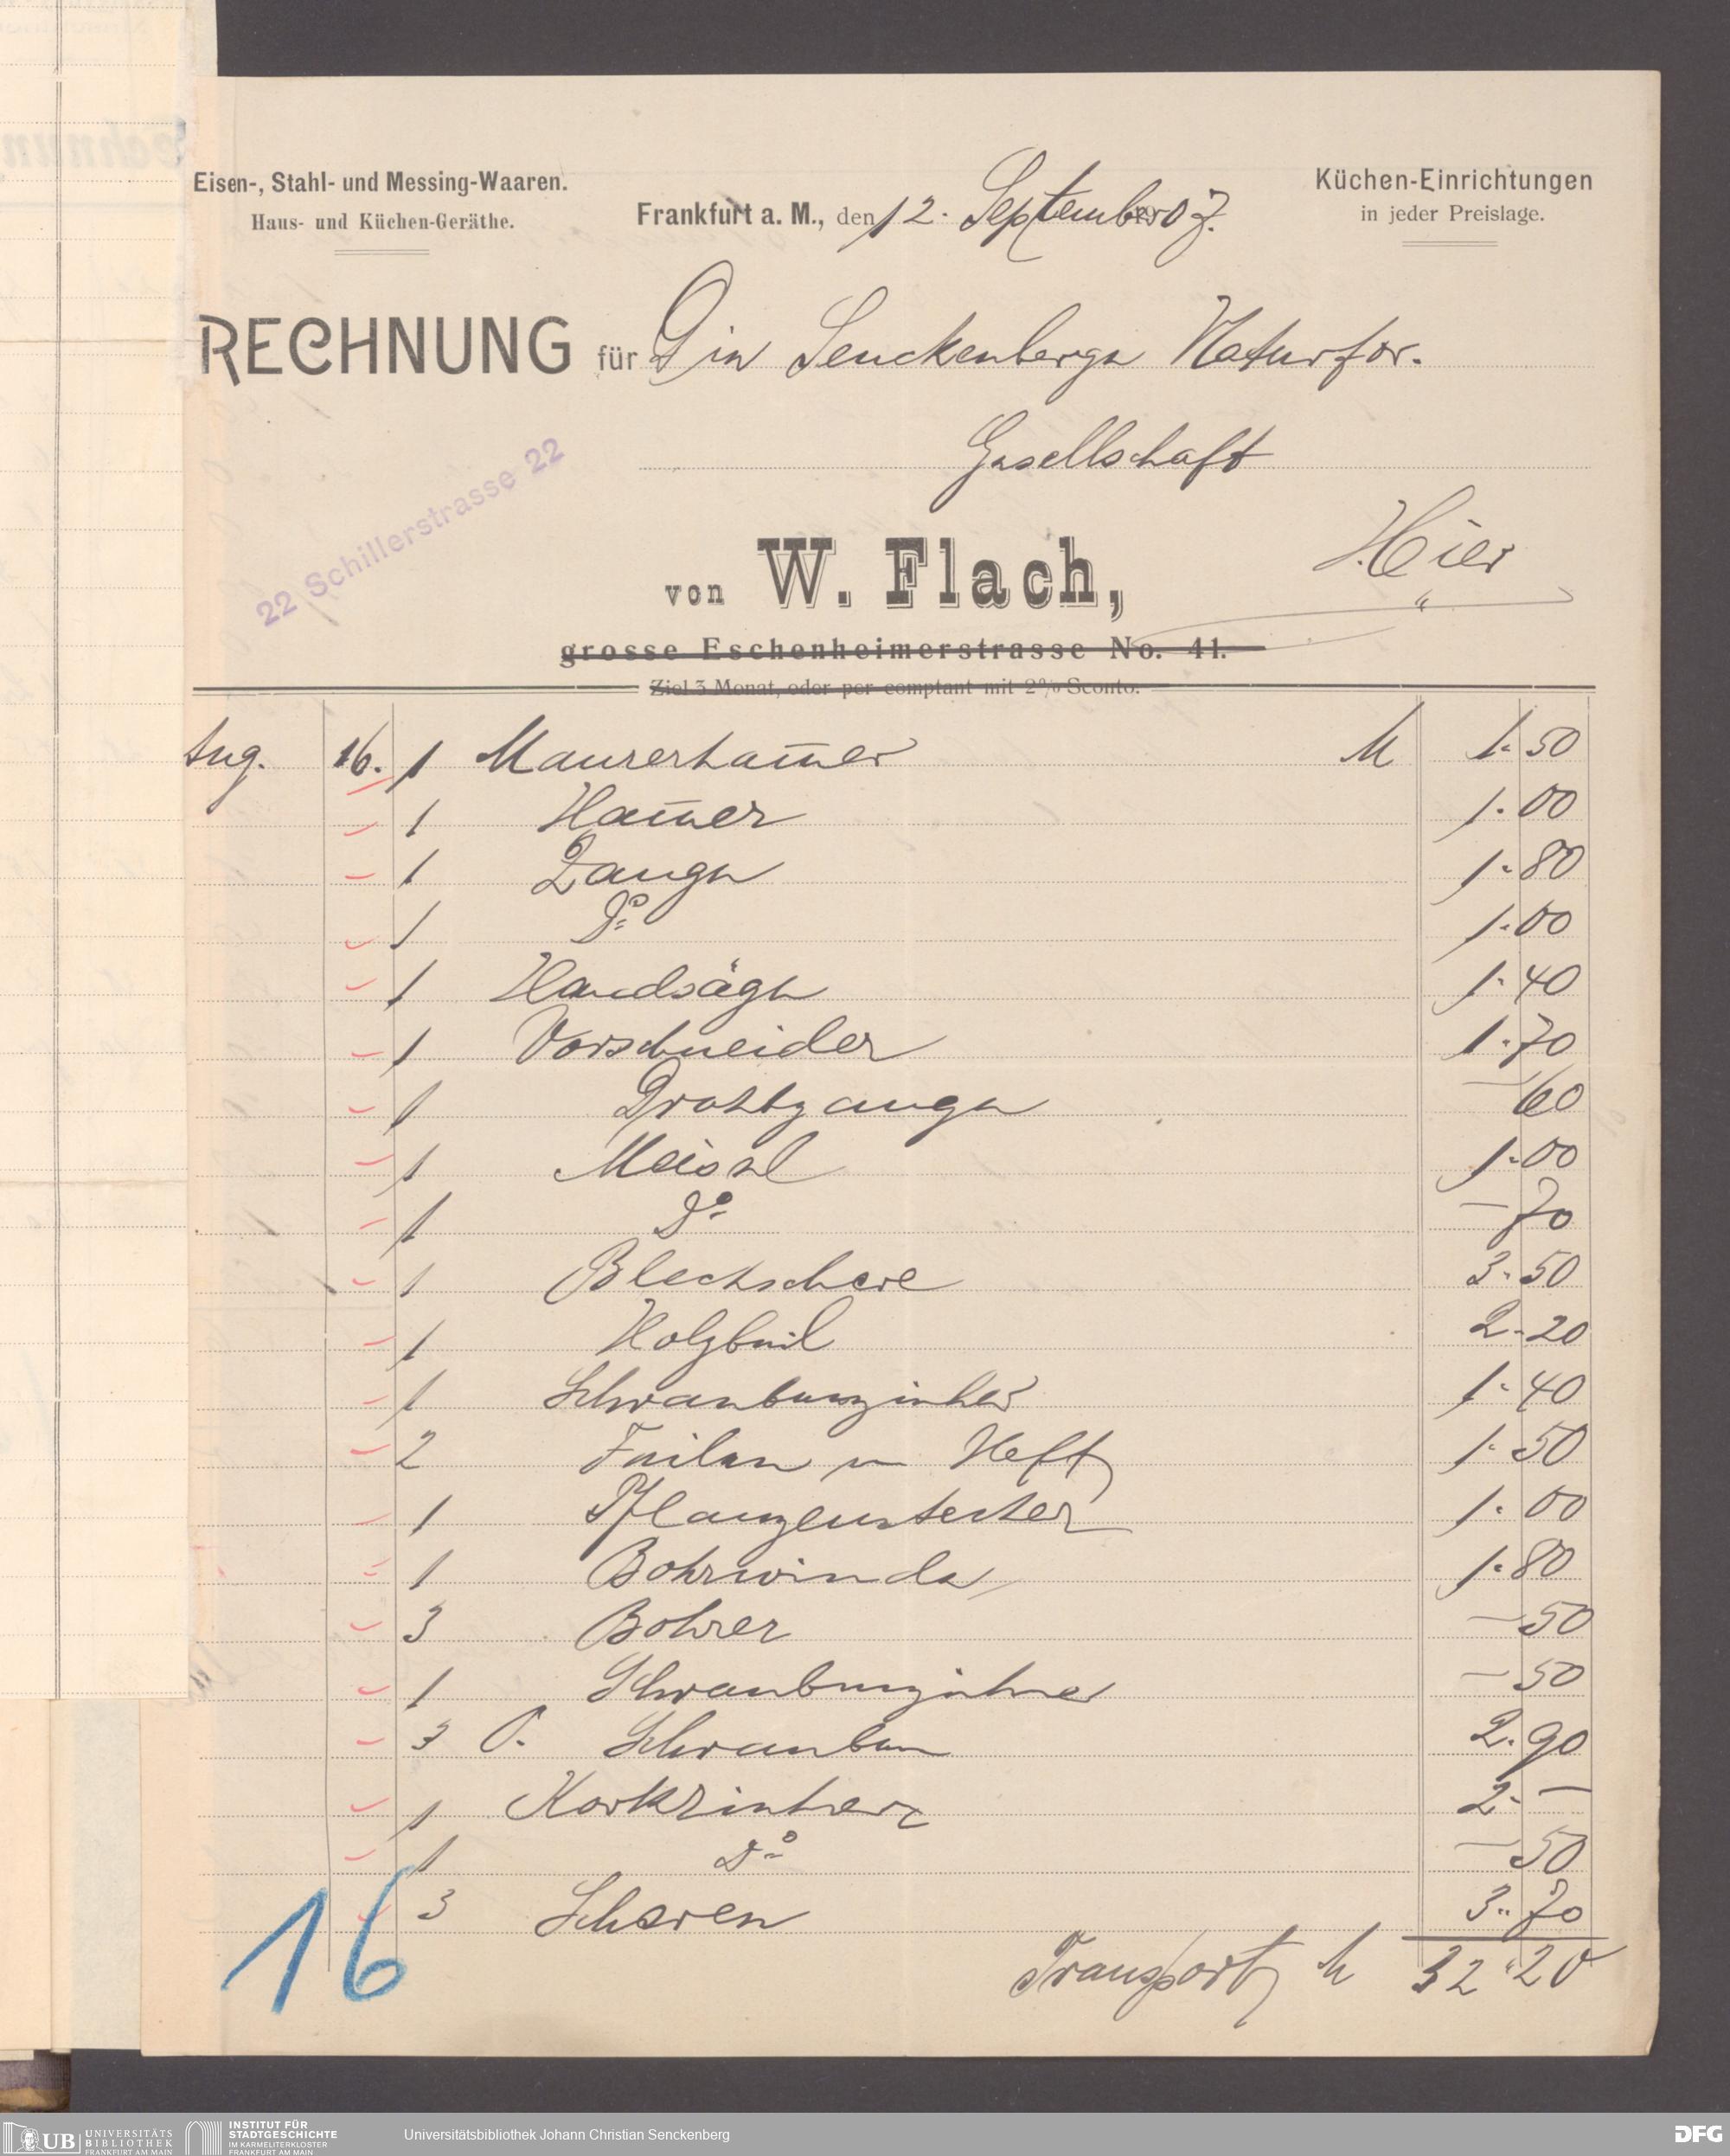 Eisen-, Stahl- und Messing-Waaren.
Haus- und Küchen-Geräthe.
Frankfurt a. M., den 12. September 1907.
Küchen-Einrichtungen
in jeder Preislage.
RECHNUNG für Die Senckenberge Naturfor.
Gesellschaft
Hier
22 Schillerstrasse 22
von W. Flach,
grosse Eschenheimerstrasse No. 41.
Ziel 3 Monat, oder per comptant mit 2% Sconto.
Aug. 16. 1 Maurerham̄er M 1.50
1 Ham̄er 1.00
1 Zange 1.80
1 Do 1.00
1 Handsäge 1.40
1 Vorschneider 1.70
1 Drahtzange — 60
1 Meisel 1.00
1 Do — 70
1 Blechschere 3.50
1 Holzbeil 2.20
1 Schraubenzieher 1.40
2 Feilen m Heft 1.50
1 Pflanzenstecher 1.00
1 Bohrwinde 1.80
3 Bohrer — 50
1 Schraubenzieher — 50
3 P. Schrauben 2.90
1 Korkzieher 2. —
1 Do — 50
3 Scheren 3.70
Transport M 32.20
16
UB UNIVERSITÄTS
BIBLIOTHEK
FRANKFURT AM MAIN
INSTITUT FÜR
STADTGESCHICHTE
IM KARMELITERKLOSTER
FRANKFURT AM MAIN
Universitätsbibliothek Johann Christian Senckenberg
DFG